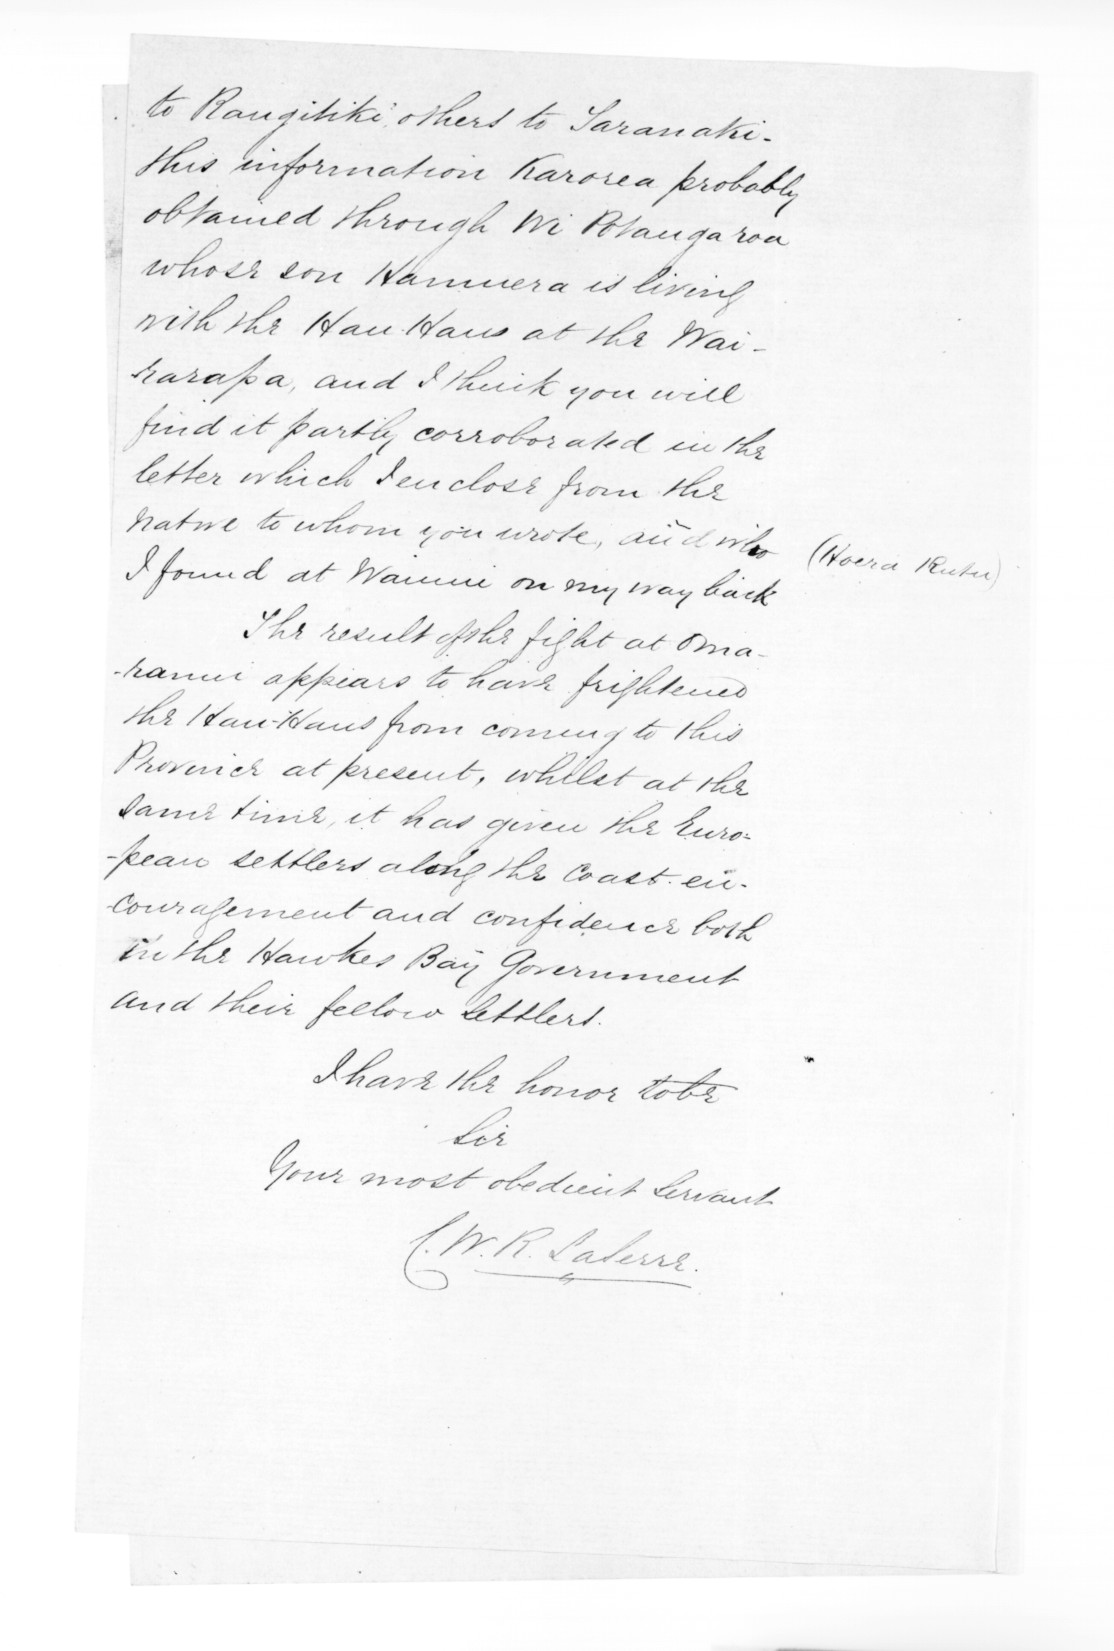 to Rangitiki, others to Taranaki -
this information Karorea probably
obtained through Wi Potangaroa
whose son Hamuera is living
with the Hau Haus at the Wai -
rarapa, and I think you will
find it partly corroborated in the
letter which I enclose from the
native to whom you wrote, and who
(Hoera Rutu)
I found at Wainui on my way back
The result of the fight at Oma -
- ranui appears to have frightened
the Hau-Haus from coming to this
Province at present, whilst at the
same time, it has given the Euro=
- pean settlers along the Coast en -
- couragement and confidence both
in the Hawkes Bay Government
and their fellow settlers.
I have the honor to be
Sir
Your most obedient Servant
C. W. R. LaSerre.